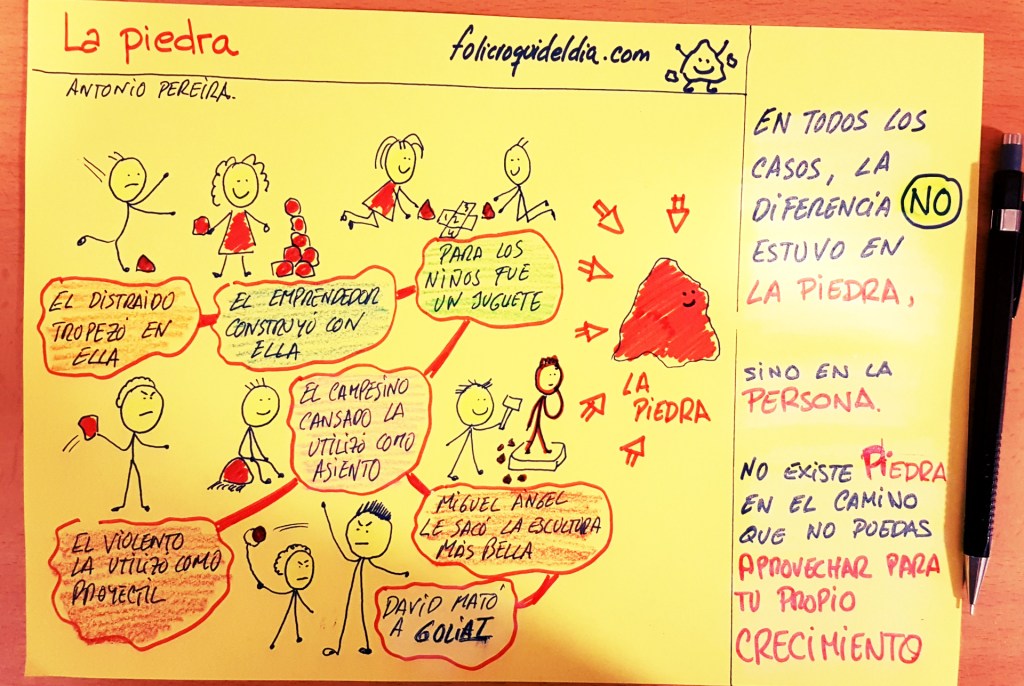 La piedra
folicroquideldia.com
ANTONIO PEREIRA.
EL DISTRAIDO
TROPEZÓ EN
ELLA
EL EMPRENDEDOR
CONSTRUYÓ CON
ELLA
1 2 3
4
PARA LOS
NIÑOS FUE
UN JUGUETE
EL CAMPESINO
CANSADO LA
UTILIZÓ COMO
ASIENTO
EL VIOLENTO
LA UTILIZÓ COMO
PROYECTIL
MIGUEL ÁNGEL
LE SACÓ LA ESCULTURA
MÁS BELLA
DAVID MATÓ
A GOLIAT
LA
PIEDRA
EN TODOS LOS
CASOS, LA
DIFERENCIA NO
ESTUVO EN
LA PIEDRA,
SINO EN LA
PERSONA.
NO EXISTE PIEDRA
EN EL CAMINO
QUE NO PUEDAS
APROVECHAR PARA
TU PROPIO
CRECIMIENTO